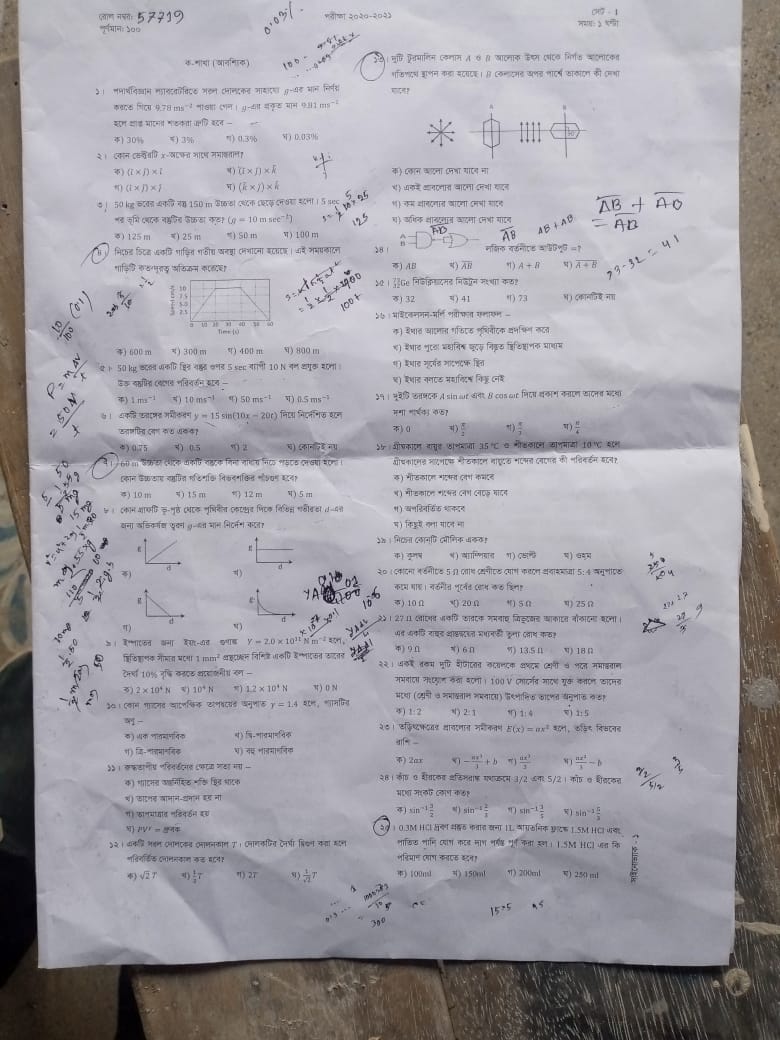 রোল নম্বর: 57719
পূর্ণমান: ১০০
পরীক্ষা ২০২০-২০২১
সেট - 1
সময়: ১ ঘন্টা
ক-শাখা (আবশ্যিক)
১। পদার্থবিজ্ঞান ল্যাবরেটরিতে সরল দোলকের সাহায্যে g-এর মান নির্ণয়
করতে গিয়ে 9.78 ms⁻² পাওয়া গেল। g-এর প্রকৃত মান 9.81 ms⁻²
হলে প্রাপ্ত মানের শতকরা ত্রুটি হবে –
ক) 30% খ) 3% গ) 0.3% ঘ) 0.03%
২। কোন ভেক্টরটি x-অক্ষের সাথে সমান্তরাল?
ক) (î × ĵ) × î খ) (î × ĵ) × k̂
গ) (î × ĵ) × ĵ ঘ) (k̂ × ĵ) × k̂
৩। 50 kg ভরের একটি বস্তু 150 m উচ্চতা থেকে ছেড়ে দেওয়া হলো। 5 sec
পর ভূমি থেকে বস্তুটির উচ্চতা কত? (g = 10 m sec⁻²)
ক) 125 m খ) 25 m গ) 50 m ঘ) 100 m
৪। নিচের চিত্রে একটি গাড়ির গতীয় অবস্থা দেখানো হয়েছে। এই সময়কালে
গাড়িটি কতদূরত্ব অতিক্রম করেছে?
10
7.5
5.0
2.5
0 10 20 30 40 50 60
Time (s)
ক) 600 m খ) 300 m গ) 400 m ঘ) 800 m
৫। 50 kg ভরের একটি স্থির বস্তুর ওপর 5 sec ব্যাপী 10 N বল প্রযুক্ত হলো।
উক্ত বস্তুটির বেগের পরিবর্তন হবে –
ক) 1 ms⁻¹ খ) 10 ms⁻¹ গ) 50 ms⁻¹ ঘ) 0.5 ms⁻¹
৬। একটি তরঙ্গের সমীকরণ y = 15 sin(10x − 20t) দিয়ে নির্দেশিত হলে
তরঙ্গটির বেগ কত একক?
ক) 0.75 খ) 0.5 গ) 2 ঘ) কোনটিই নয়
৭। 60 m উচ্চতা থেকে একটি বস্তুকে বিনা বাধায় নিচে পড়তে দেওয়া হলো।
কোন উচ্চতায় বস্তুটির গতিশক্তি বিভবশক্তির পাঁচগুণ হবে?
ক) 10 m খ) 15 m গ) 12 m ঘ) 5 m
৮। কোন গ্রাফটি ভূ-পৃষ্ঠ থেকে পৃথিবীর কেন্দ্রের দিকে বিভিন্ন গভীরতা d-এর
জন্য অভিকর্ষজ ত্বরণ g-এর মান নির্দেশ করে?
ক) g d খ) g d
গ) g d ঘ) g d
৯। ইস্পাতের জন্য ইয়ং-এর গুণাঙ্ক Y = 2.0 × 10¹¹ N m⁻² হলে,
স্থিতিস্থাপক সীমার মধ্যে 1 mm² প্রস্থচ্ছেদ বিশিষ্ট একটি ইস্পাতের তারের
দৈর্ঘ্য 10% বৃদ্ধি করতে প্রয়োজনীয় বল –
ক) 2 × 10⁴ N খ) 10⁴ N গ) 1.2 × 10⁴ N ঘ) 0 N
১০। কোন গ্যাসের আপেক্ষিক তাপদ্বয়ের অনুপাত γ = 1.4 হলে, গ্যাসটির
অণু –
ক) এক পারমাণবিক খ) দ্বি-পারমাণবিক
গ) ত্রি-পারমাণবিক ঘ) বহু পারমাণবিক
১১। রুদ্ধতাপীয় পরিবর্তনের ক্ষেত্রে সত্য নয় –
ক) গ্যাসের অন্তর্নিহিত শক্তি স্থির থাকে
খ) তাপের আদান-প্রদান হয় না
গ) তাপমাত্রার পরিবর্তন হয়
ঘ) PVʸ = ধ্রুবক
১২। একটি সরল দোলকের দোলনকাল T। দোলকটির দৈর্ঘ্য দ্বিগুণ করা হলে
পরিবর্তিত দোলনকাল কত হবে?
ক) √2 T খ) ½T গ) 2T ঘ) 1/√2 T
১৩। দুটি টুরমালিন কেলাস A ও B আলোক উৎস থেকে নির্গত আলোকের
গতিপথে স্থাপন করা হয়েছে। B কেলাসের অপর পার্শ্বে তাকালে কী দেখা
যাবে?
A B
ক) কোন আলো দেখা যাবে না
খ) একই প্রাবল্যের আলো দেখা যাবে
গ) কম প্রাবল্যের আলো দেখা যাবে
ঘ) অধিক প্রাবল্যের আলো দেখা যাবে
১৪। A B লজিক বর্তনীতে আউটপুট =?
ক) AB খ) A̅B̅ গ) A + B ঘ) A̅ ̅+̅ ̅B̅
১৫। ⁷³₃₂Ge নিউক্লিয়াসের নিউট্রন সংখ্যা কত?
ক) 32 খ) 41 গ) 73 ঘ) কোনটিই নয়
১৬। মাইকেলসন-মর্লি পরীক্ষার ফলাফল –
ক) ইথার আলোর গতিতে পৃথিবীকে প্রদক্ষিণ করে
খ) ইথার পুরো মহাবিশ্ব জুড়ে বিস্তৃত স্থিতিস্থাপক মাধ্যম
গ) ইথার সূর্যের সাপেক্ষে স্থির
ঘ) ইথার বলতে মহাবিশ্বে কিছু নেই
১৭। দুইটি তরঙ্গকে A sin ωt এবং B cos ωt দিয়ে প্রকাশ করলে তাদের মধ্যে
দশা পার্থক্য কত?
ক) 0 খ) π/2 গ) π/3 ঘ) π/4
১৮। গ্রীষ্মকালে বায়ুর তাপমাত্রা 35 °C ও শীতকালে তাপমাত্রা 10 °C হলে
গ্রীষ্মকালের সাপেক্ষে শীতকালে বায়ুতে শব্দের বেগের কী পরিবর্তন হবে?
ক) শীতকালে শব্দের বেগ কমবে
খ) শীতকালে শব্দের বেগ বেড়ে যাবে
গ) অপরিবর্তিত থাকবে
ঘ) কিছুই বলা যাবে না
১৯। নিচের কোনটি মৌলিক একক?
ক) কুলম্ব খ) অ্যাম্পিয়ার গ) ভোল্ট ঘ) ওহম
২০। কোনো বর্তনীতে 5 Ω রোধ শ্রেণীতে যোগ করলে প্রবাহমাত্রা 5:4 অনুপাতে
কমে যায়। বর্তনীর পূর্বের রোধ কত ছিল?
ক) 10 Ω খ) 20 Ω গ) 5 Ω ঘ) 25 Ω
২১। 27 Ω রোধের একটি তারকে সমবাহু ত্রিভুজের আকারে বাঁকানো হলো।
এর একটি বাহুর প্রান্তদ্বয়ের মধ্যবর্তী তুল্য রোধ কত?
ক) 9 Ω খ) 6 Ω গ) 13.5 Ω ঘ) 18 Ω
২২। একই রকম দুটি হীটারের কয়েলকে প্রথমে শ্রেণী ও পরে সমান্তরাল
সমবায়ে সংযোগ করা হলো। 100 V সোর্সের সাথে যুক্ত করলে তাদের
মধ্যে (শ্রেণী ও সমান্তরাল সমবায়ে) উৎপাদিত তাপের অনুপাত কত?
ক) 1:2 খ) 2:1 গ) 1:4 ঘ) 1:5
২৩। তড়িৎক্ষেত্রের প্রাবল্যের সমীকরণ E(x) = ax² হলে, তড়িৎ বিভবের
রাশি –
ক) 2ax খ) −ax³/3 + b গ) ax³/3 ঘ) ax³/3 − b
২৪। কাঁচ ও হীরকের প্রতিসরাঙ্ক যথাক্রমে 3/2 এবং 5/2। কাঁচ ও হীরকের
মধ্যে সংকট কোণ কত?
ক) sin⁻¹ 3/2 খ) sin⁻¹ 2/3 গ) sin⁻¹ 3/5 ঘ) sin⁻¹ 5/3
২৫। 0.3M HCl দ্রবণ প্রস্তুত করার জন্য 1L আয়তনিক ফ্লাস্কে 1.5M HCl এবং
পাতিত পানি যোগ করে দাগ পর্যন্ত পূর্ণ করা হল। 1.5M HCl এর কি
পরিমাণ যোগ করতে হবে?
ক) 100ml খ) 150ml গ) 200ml ঘ) 250 ml
0.03%
125
A̅B̅ + A̅B̅
= A̅B̅
AB + AB
73-32 = 41